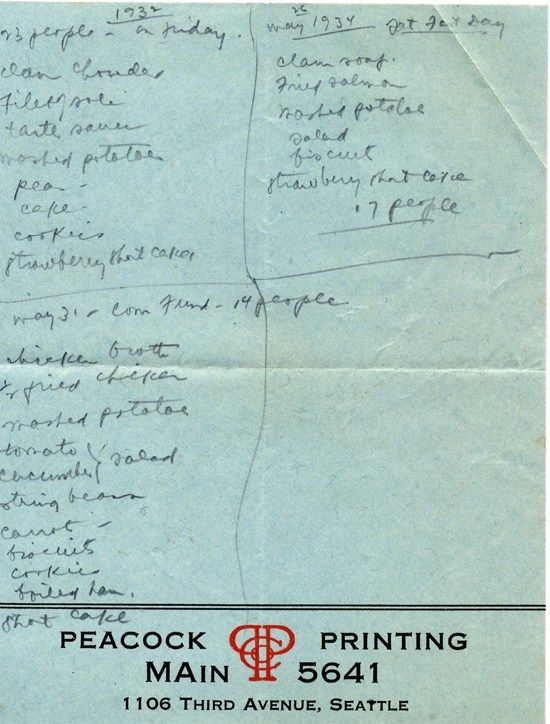 1932
23 people - on Friday.
clam chouder
Filet of sole
tarter sauce
mashed potatoe
pea -
cake -
cookies
strawberry short cake
may 25 1934
Day
clam soap.
Fried salmon
mashed potatoe
salad
biscuit
strawberry short cake
17 people
may 31 - Com Fund - 14 people
chicken broth
fried chicken
mashed potatoe
tomato
cucumber salad
string beans
carrot -
biscuits
cookies
boiled ham.
short cake
PEACOCK PCO PRINTING
MAIN 5641
1106 THIRD AVENUE, SEATTLE